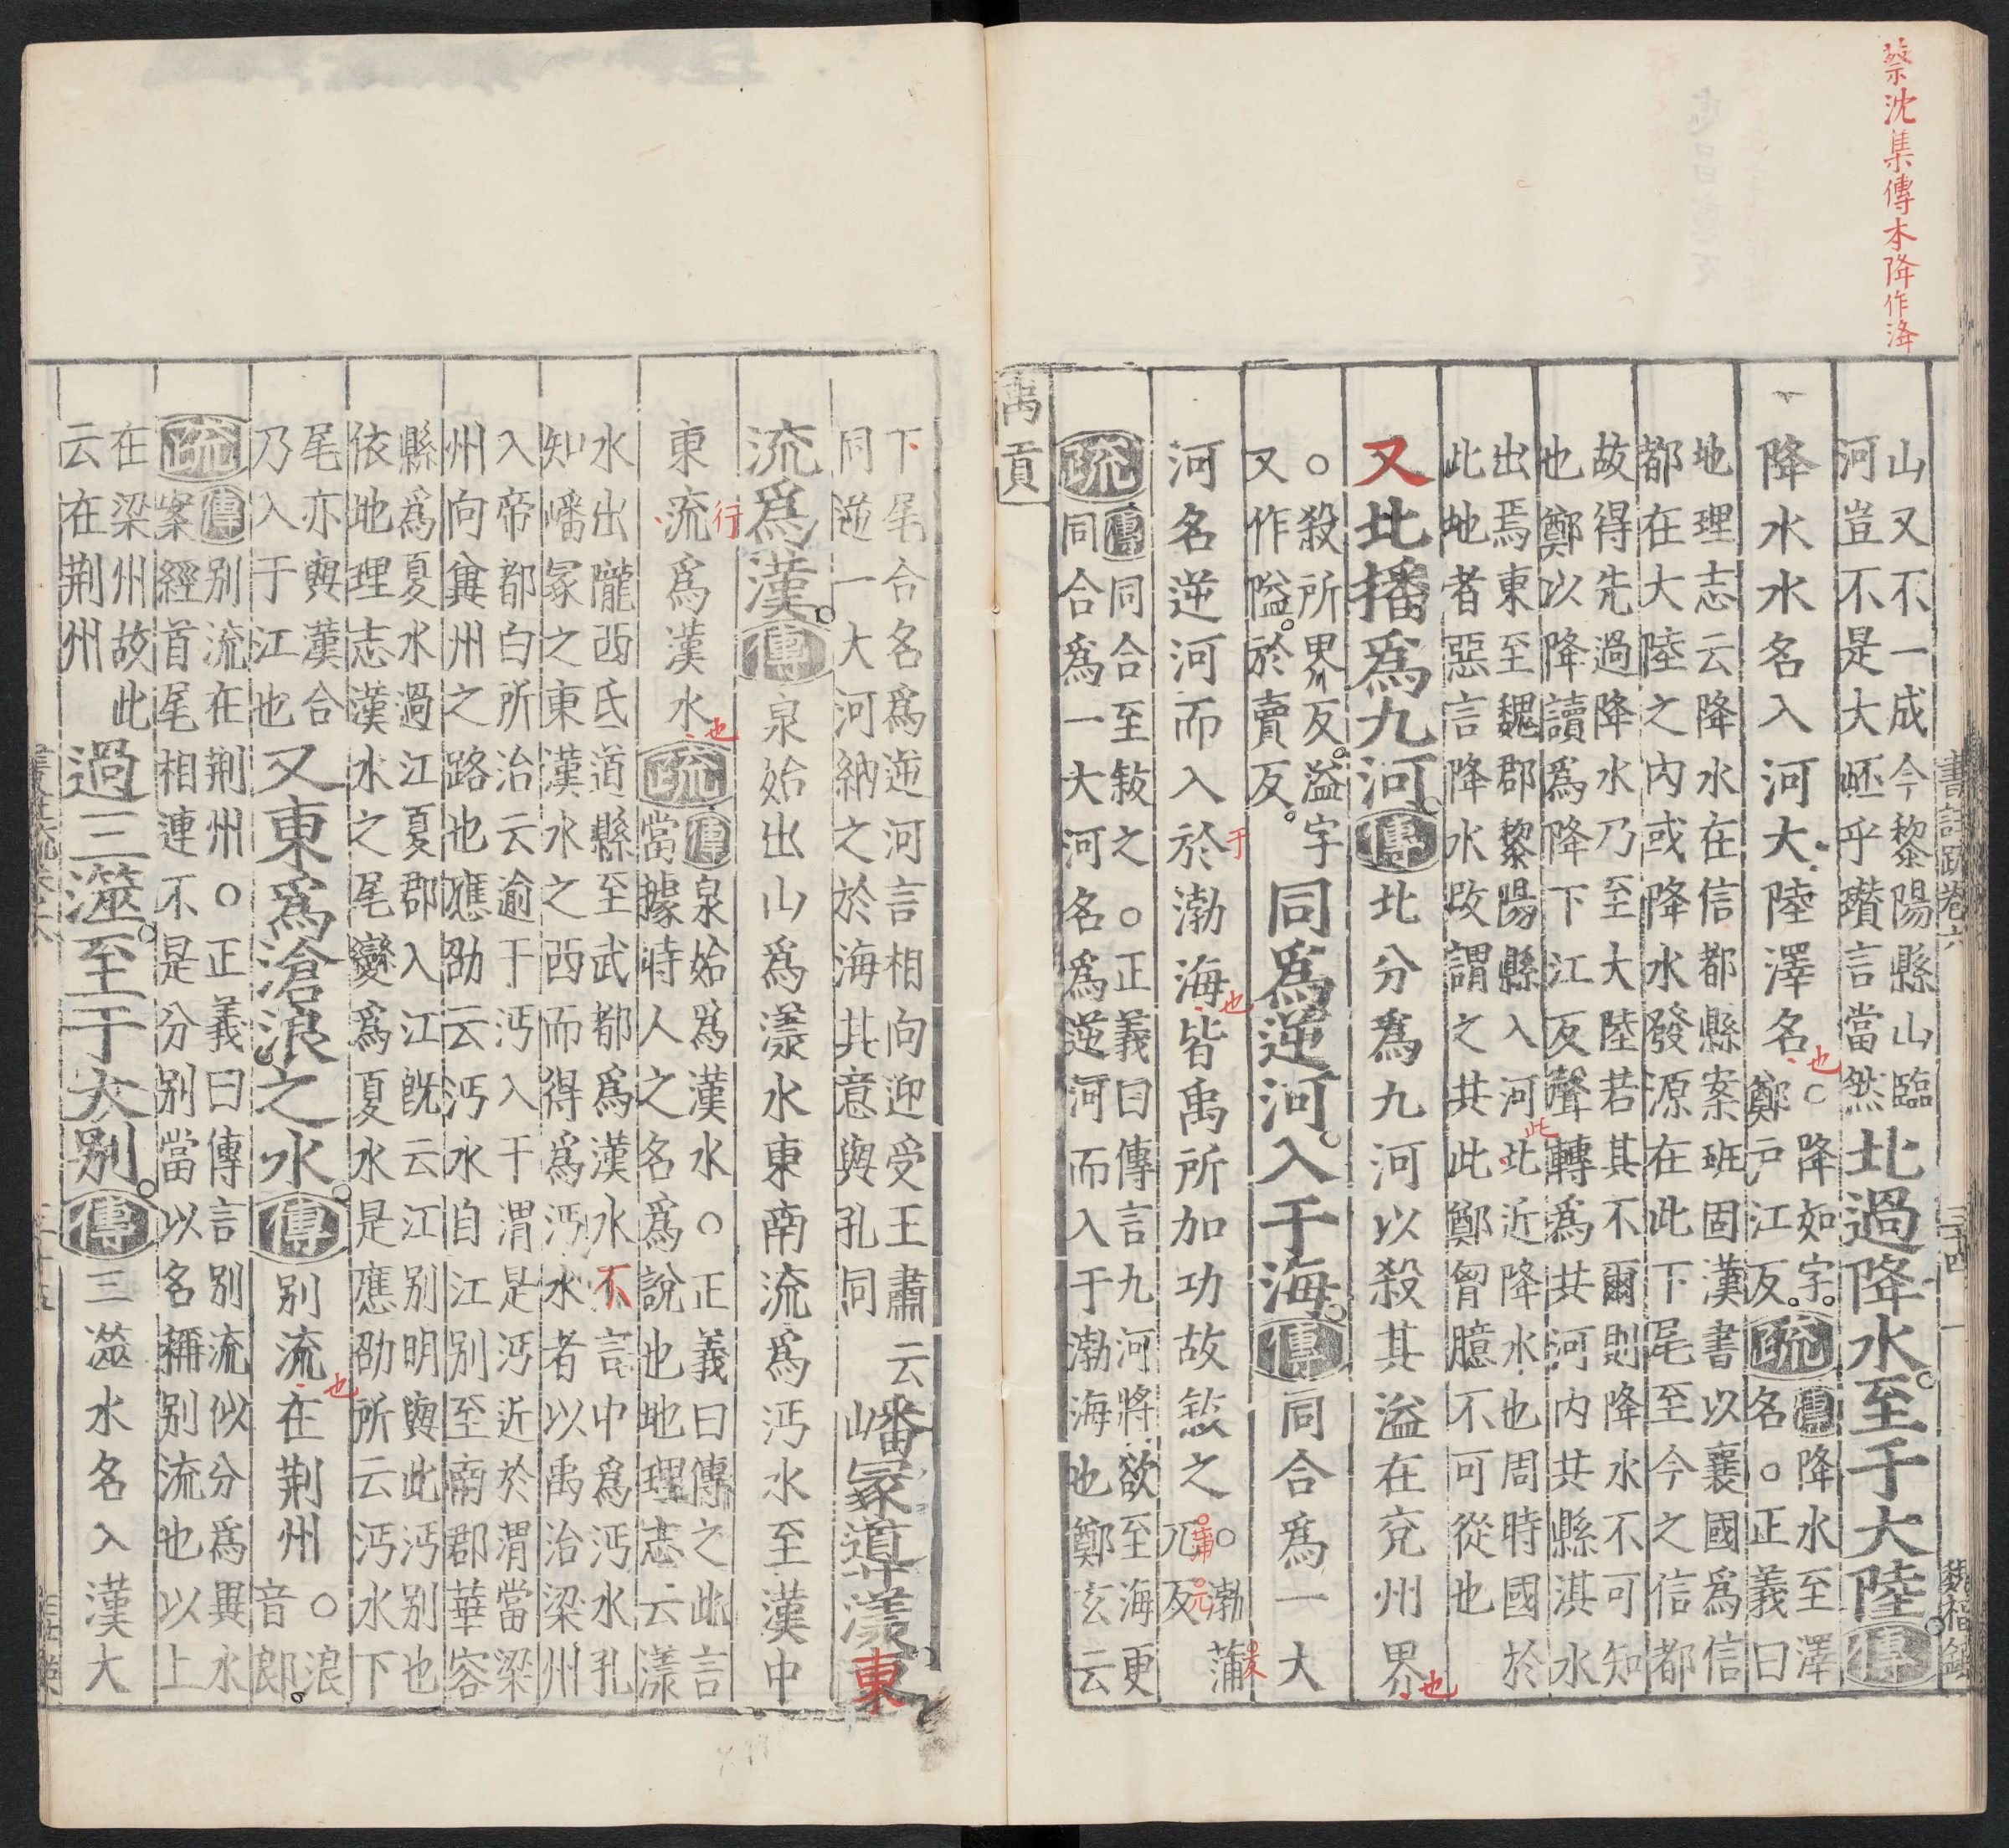 蔡沈集傳本降作洚
書註疏卷六
三十四
山又不一成今黎陽縣山臨
河豈不是大岯乎瓚言當然
北過降水至于大陸傳
降水水名入河大陸澤名也
○降如字
鄭戶江反
疏傳降水至澤
名○正義曰
地理志云降水在信都縣案班固漢書以襄國爲信
都在大陸之內或降水發源在此下尾至今之信都
故得先過降水乃至大陸若其不爾則降水不可知
也鄭以降讀爲降下江反聲轉爲共河內共縣淇水
出焉東至魏郡黎陽縣入河此北近降水也周時國於
此地者惡言降水改謂之共此鄭胷臆不可從也
又北播爲九河傳北分爲九河以殺其溢在兗州界也
○殺所界反溢字
又作隘於賣反
同爲逆河入于海傳同合爲一大
河名逆河而入於于渤海也皆禹所加功故敘之
○渤蒲
兀反
蒲
元
疏傳同合至敘之○正義曰傳言九河將欲至海更
同合爲一大河名爲逆河而入于渤海也鄭玄云
禹貢
下尾合名爲逆河言相向迎受王肅云
同逆一大河納之於海其意與孔同
嶓冢導漾東
流爲漢傳泉始出山爲漾水東南流爲沔水至漢中
東流行爲漢水也
疏傳泉始爲漢水○正義曰傳之此言
當據時人之名爲說也地理志云漾
水出隴西氐道縣至武都爲漢水不言中爲沔水孔
知嶓冢之東漢水之西而得爲沔水者以禹治梁州
入帝都白所治云逾于沔入于渭是沔近於渭當梁
州向冀州之路也應劭云沔水自江別至南郡華容
縣爲夏水過江夏郡入江旣云江別明與此沔別也
依地理志漢水之尾變爲夏水是應劭所云沔水下
尾亦與漢合
乃入于江也
又東爲滄浪之水傳別流也在荆州
○浪
音郎
疏傳別流在荆州○正義曰傳言別流似分爲異水
案經首尾相連不是分別當以名稱別流也以上
在梁州故此
云在荆州
過三澨至于大別傳三澨水名入漢大